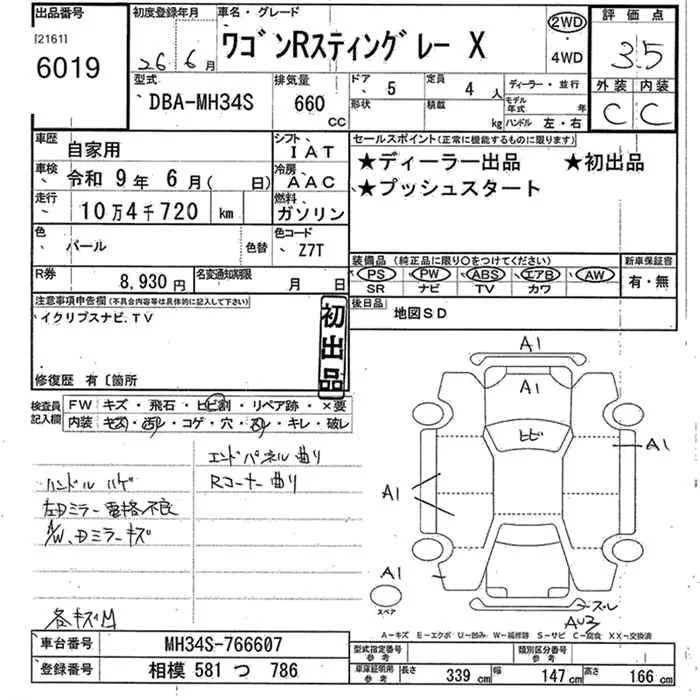 出品番号
[2161]
6019
初度登録年月
26年 6月
車名・グレード
ワゴンRスティングレー X
2WD
・
4WD
評価点
3.5
外装 内装
C C
型式
DBA-MH34S
排気量
660 CC
ドア 5
定員 4 人
形状
積載 kg
ディーラー・並行
モデル年式 年
ハンドル 左・右
車歴
自家用
シフト
IAT
車検
令和 9年 6月( 日)
冷房
AAC
走行
10万4千720 km
燃料
ガソリン
色
パール
色替
色コード
Z7T
R券
8,930円
名変通知期限
月 日
セールスポイント(正常に機能するものに限ります)
★ディーラー出品 ★初出品
★プッシュスタート
装備品 (純正品に限り○をつけてください)
PS PW ABS エアB AW
SR ナビ TV カワ
新車保証書
有・無
後日品
地図SD
注意事項申告欄(不具合内容等は具体的に記入して下さい)
イクリプスナビ.TV
初出品
修復歴 有〔箇所
検査員記入欄
FW キズ・飛石・ヒビ割・リペア跡・×要
内装 キズ・汚レ・コゲ・穴・スレ・キレ・破レ
エンドパネル曲り
Rコーナー曲り
ハンドルハゲ
左Dミラー電格不良
A/W、Dミラーキズ
各キズM
A1
A1
ヒビ
A1
A1
A1
スレ
AU3
スペア
A-キズ E-エクボ U-凹み W-補修跡 S-サビ C-腐食 XX-交換済
車台番号
MH34S-766607
登録番号
相模 581 つ 786
型式指定番号
参考
類別区分番号
参考
車庫証明用
参考
長さ 339 cm
幅 147 cm
高さ 166 cm